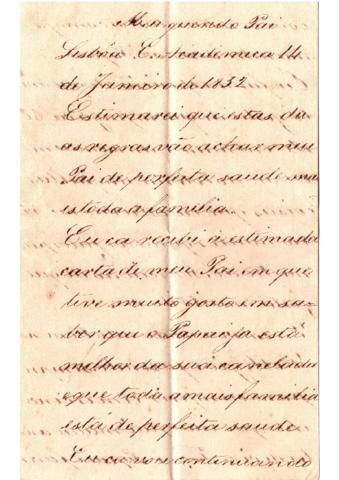 Meu querido Pai
Lisbôa E. Academica 14
de Janeiro de 1832
Estimarei que estas du
as regras vão achar meu
Pai de perfeita saude ma
is toda a familia.
Eu ca recibi a estimada
carta de meu Pai em que
tive muito gosto em sa-
ber que o Papá ja está
melhor da sua
e que toda a mais familia
está de perfeita saude
Eu ca vou continuando